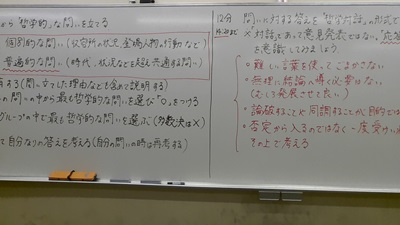 から"哲学的"な問いを立てる
個別的な問い(収容所の状況、登場人物の行動など)
普遍的な問い(時代、状況などを超え共通する問い)
有する(問いを立てた理由なども含めて説明する)
の問いの中から最も哲学的な問いを選び「○」をつける
グループの中で最も哲学的な問いを選ぶ(多数決は×)
て自分なりの答えを考える(自分の問いの時は再考する)
12分 問いに対する答えを"哲学対話"の形式で
※対話であって意見発表ではない。
を意識してみましょう。
○難しい言葉を使ってごまかさない
○無理に結論へ導く必要はない
(むしろ発展させて良い)
○論破することや同調することが目的では
○否定から入るのではなく一度受け
その上で考える